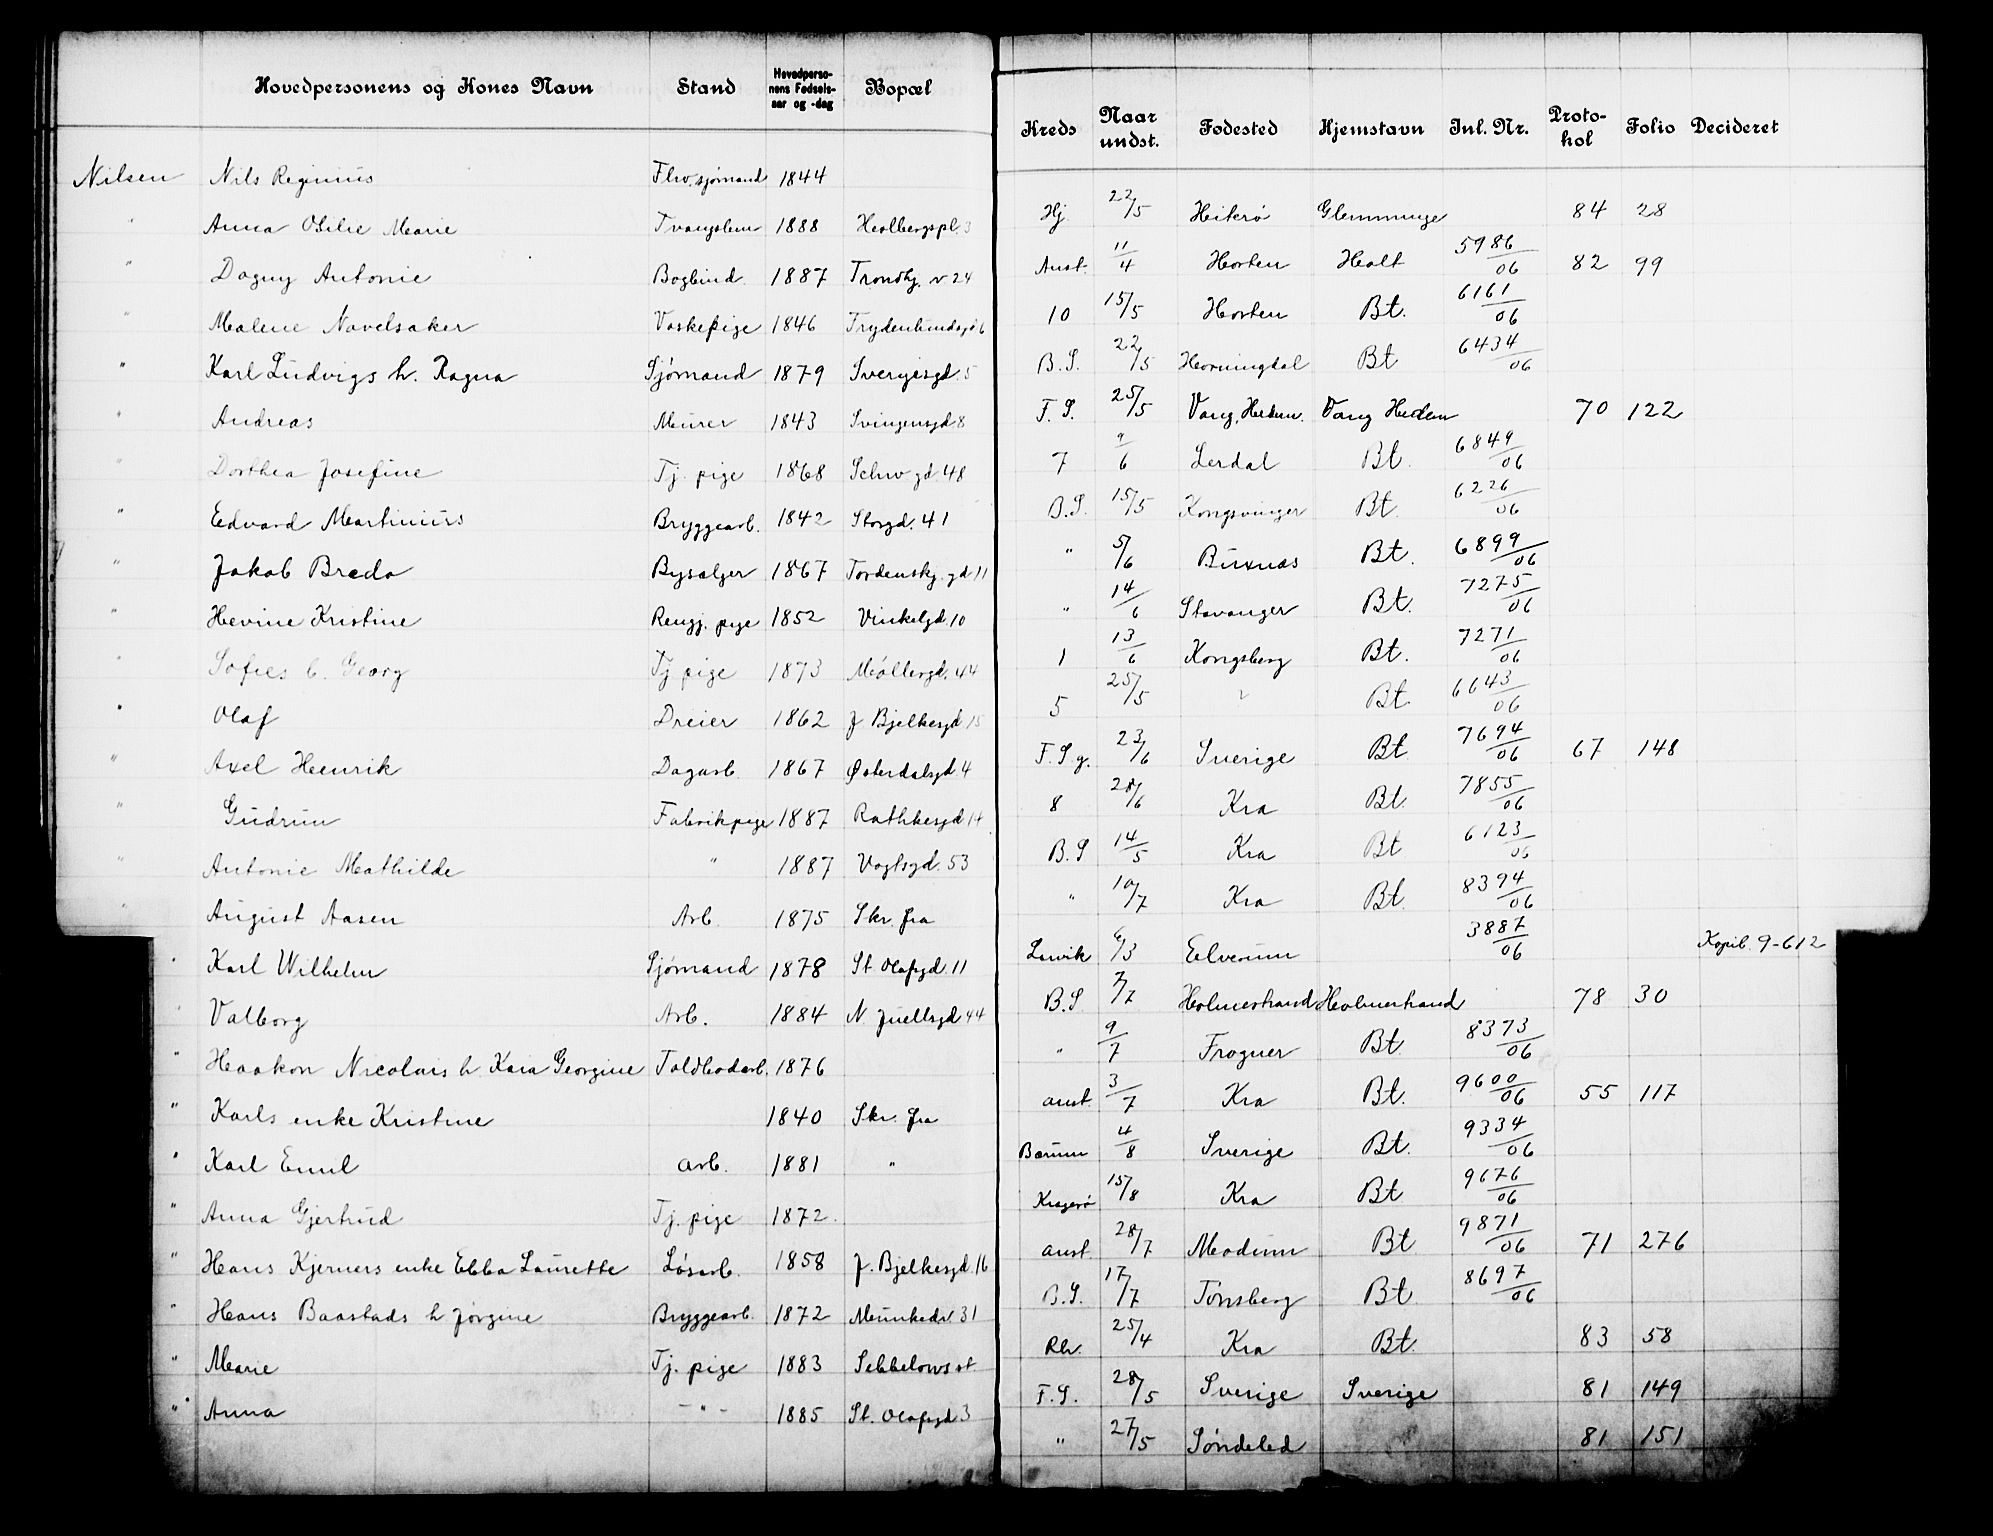 Hovedpersonens og Kones Navn Stand Hovedperso-nens Fødsels-aar og -dag Bopæl Kreds Naar undst. Fødested Hjemstavn Inl. Nr. Proto-kol Folio Decideret
Nilsen Nils Reginius Fhv. sjømand 1844 Hj. 22/5 Glemminge 84 28
" Anna Otilie Marie Tvangslem 1888 Holbergspl. 3 Anst. 11/4 Horten Holt 5986/06 82 99
" Dagny Antonie Bogbind. 1887 Trondhj. v 24 10 15/5 Horten Bt. 6161/06
" Malene Navelsaker Vaskepige 1846 Frydenlundsgd 6 B.S. 22/5 Horningdal Bt 6434/06
" Karl Ludvigs h. Ragna Sjømand 1879 Sverigesgd. 5 F.S. 25/5 Vang, Hedem. Vang Hedem 70 122
" Andreas Murer 1843 Svingensgd 8 7 9/6 Lerdal Bt. 6849/06
" Dorthea Josefine Tj. pige 1868 Schw gd 48 B.S. 15/5 Kongsvinger Bt. 6226/06
" Edvard Martinius Bryggearb. 1842 Storgd. 41 " 5/6 Buxnas Bt. 6899/06
" Jakob Breda Bysælger 1867 Tordenskj. gd 11 " 14/6 Stavanger Bt. 7275/06
" Hevine Kristine Rengj. pige 1852 Vinkelgd 10 1 13/6 Kongsberg Bt. 7271/06
" Sofies b. Georg Tj pige 1873 Møllergd. 44 5 25/5 " Bt 6643/06
" Olaf Dreier 1862 J Bjelkesgd 15 F.S.g. 23/6 Sverige Bt 7694/06 67 148
" Axel Henrik Dagarb. 1867 Østerdalsgd. 4 8 28/6 Kra Bt. 7855/06
" Gudrun Fabrikpige 1887 Rathkesgd 14 B.S 14/5 Kra Bt 6123/06
" Antonie Mathilde " 1887 Vogtsgd. 53 " 10/7 Kra Bt. 8394/06
" August Aasen Arb. 1875 Skr. fra Larvik 6/3 Elverum 3887/06 Kopib. 9-612
" Karl Wilhelm Sjømand 1878 St Olafsgd. 11 B.S. 7/7 Holmestrand Holmestrand 78 30
" Valborg Arb. 1884 N. Juellsgd 44 " 9/7 Frogner Bt. 8373/06
" Haakon Nicolais h. Kaia Georgine Toldbodarb. 1876 anst. 3/7 Kra Bt. 9600/06 55 117
" Karls enke Kristine 1840 Skr. fra Bærum 4/8 Sverige Bt. 9334/06
" Karl Emil arb. 1881 " Kragerø 15/8 Kra Bt 9676/06
" Anna Gjertrud Tj. pige 1872. anst. 28/7 Modum Bt 9871/06 71 276
" Hans Kjerners enke Ebba Laurette Løsarb. 1858 J. Bjelkesgd. 16 B.S. 17/7 Tønsberg Bt. 8697/06
" Hans Baastads h Jørgine Bryggearb. 1872 Munkedv. 31 Rh. 25/4 Kra Bt. 83 58
" Marie Tj. pige 1883 Sebbelows st F.S. 28/5 Sverige Sverige 81 149
" Anna - " - 1885 St. Olafsgd 3 " 27/5 Søndeled 81 151